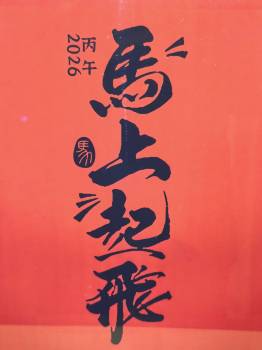 馬上起飛
丙午
2026
馬